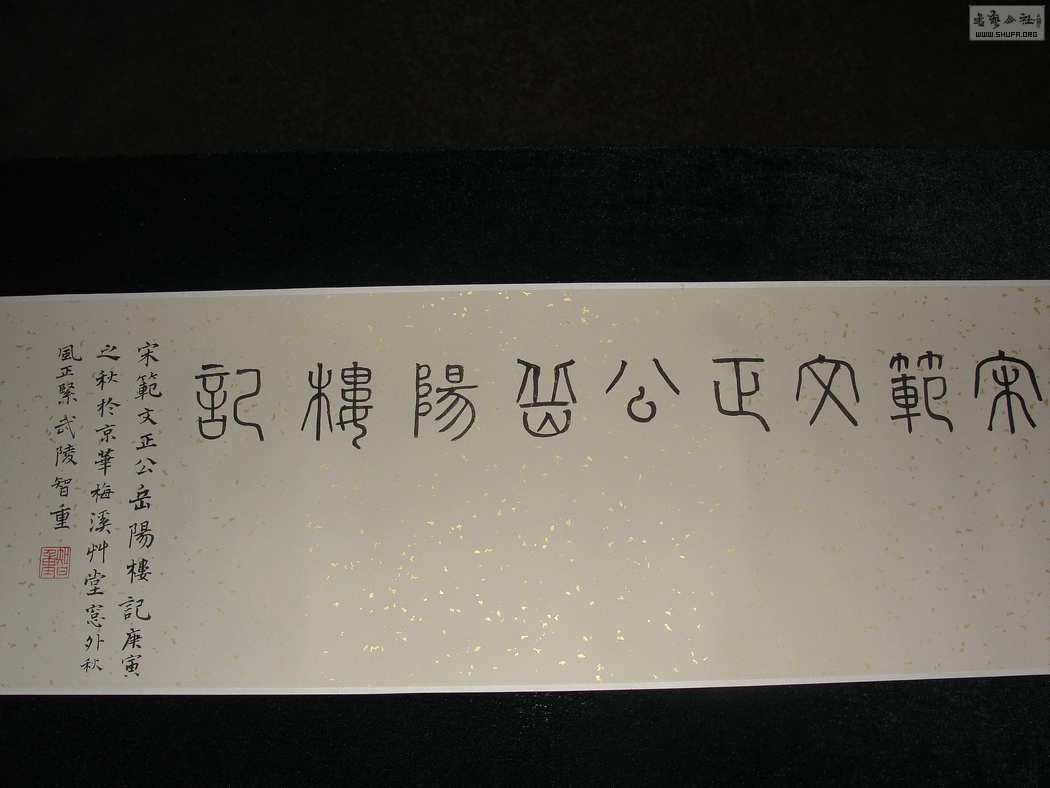 宋範文正公岳陽樓記
宋範文正公岳陽樓記庚寅
之秋於京華梅溪艸堂窓外秋
風正緊武陵智重
智重
書藝公社
WWW.SHUFA.ORG